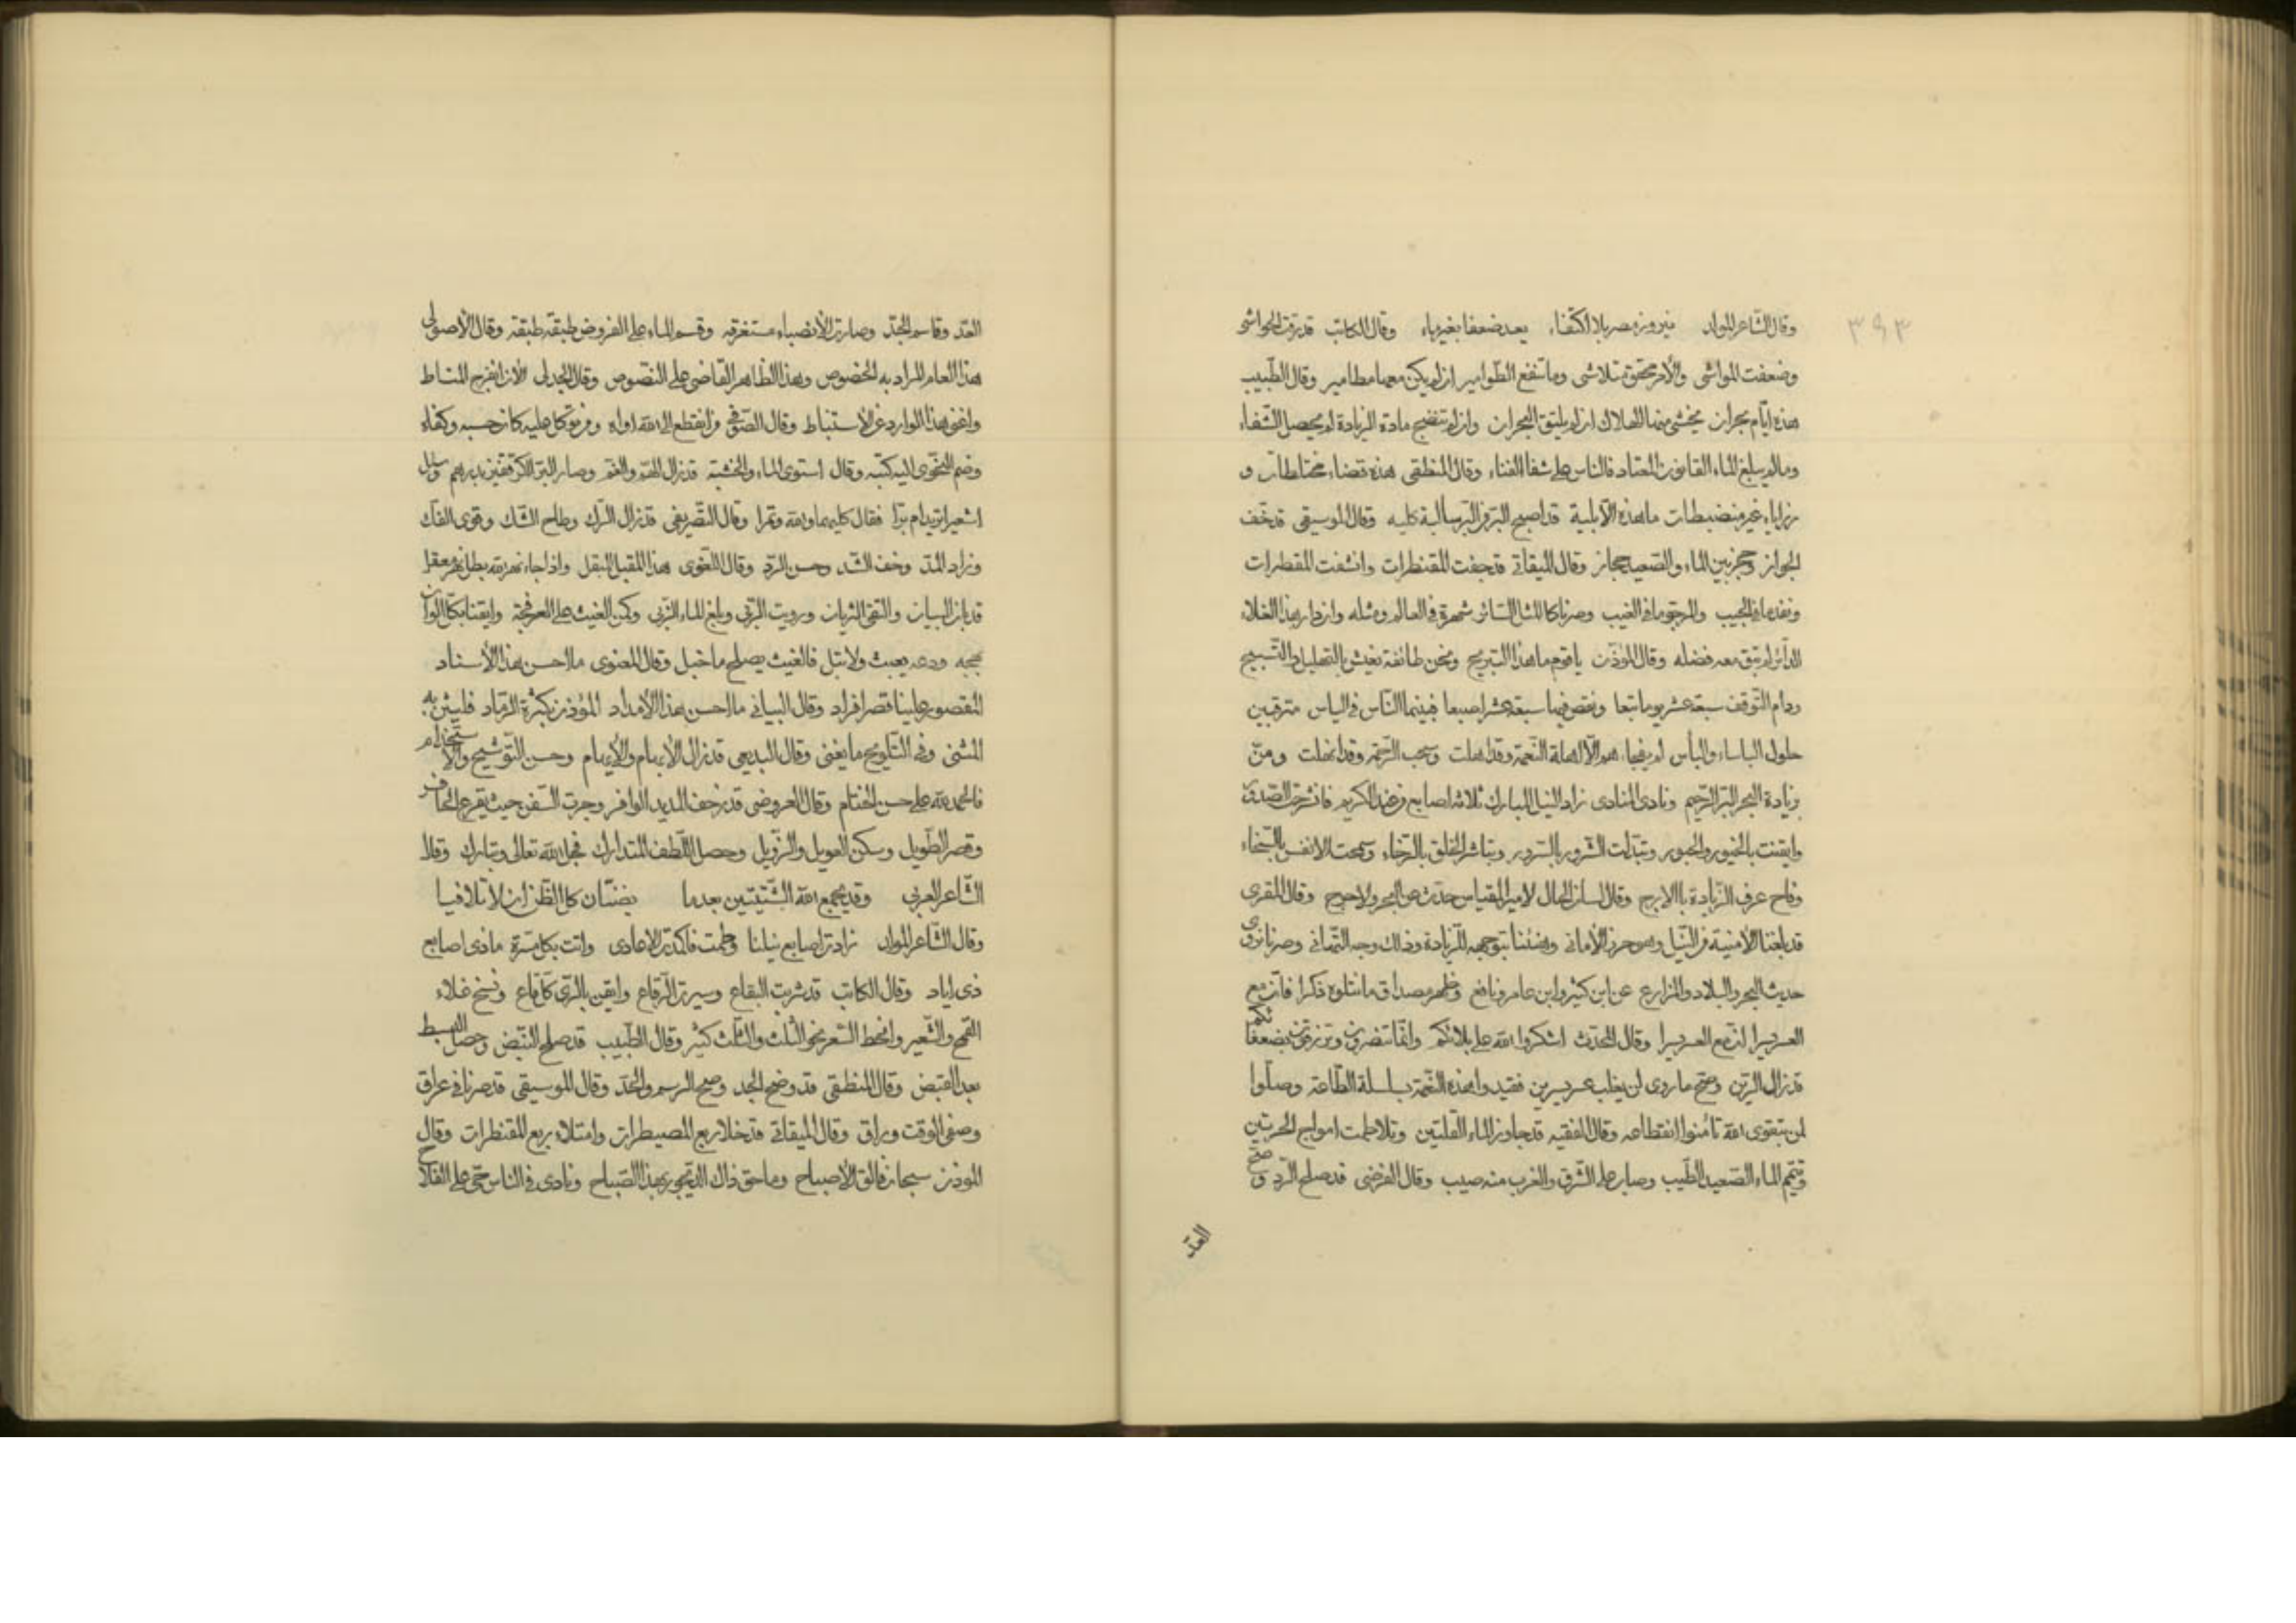 ٣٩٣
وقال الشاعر المواد نيروز مصر بلا اكتفاء يعد ضعفا بغير ماء وقال الكاتب قد رقت الحواشى
وضعفت المواشى والأمر محقق تلاشى وما تنفع الطوامير ان لم يكن معها مطامير وقال الطبيب
هذه ايام بحران يخشى منها الهلاك ان لم يليق البحران وان لم تنضج مادة الزيادة لم يحصل الشفاء
ومالم يبلغ الماء القانون المعتاد فالناس على شفا الفناء وقال المنطقى هذه قضاء مختلطات و
رزايا غير منضبطات ما هذه الآبلية قد اصبح البر فى البر سالبة كليه وقال الموسيقى قد خف
الجواز وحجز بين الماء والصعيد حجاز وقال الميقاتى قد جفت المقنطرات وانشفت المقطرات
ونفد ما فى الجيب والمرجو ما فى الغيب وصرنا كالمثل السائر شهرة فى العالم ومثله وازدار هذا الغلاء
الدائر لم تبق معه فضله وقال المؤذن يا قوم ما هذا التبريح ونحن طائفة نعيش بالتهليل والتسبيح
ودام التوقف سبعة عشر يوما تبعا ونقص فيها سبعة عشر اصبعا فبينما الناس فى الياس مترقبين
حلول الباساء والبأس لم يفجاهم الا اهلة النعمة وقد اهلت وسحب الرحمة وقد انهلت ومن
وزيادة البحر البر الرحيم ونادى المنادى زاد النيل المبارك ثلاثه اصابع من عند الكريم فانشرحت الصدور
وايقنت بالخيور والحبور وتبدلت الشرور بالسرور وتباشر الخلق بالرخاء وسمحت الانفس بالسخاء
وفاح عرف الزيادة باالارج وقال لسان الحال لامير المقياس حدث عن البحر ولا حرج وقال المقرى
قد بلغنا الأمنية من النيل وهو حرز الأمانى وهنئنا بتوجهه للزيادة وذلك وجه التهانى وصرنا نروى
حديث البحر والبلاد والمزارع عن ابن كثير وابن عامر ونافع وظهر مصداق ما نتلوه ذكرا فان مع
العسر يسرا ان مع العسر يسرا وقال المحدث اشكروا الله على بلائكم وانما تنصرون وترزقون بضعفائكم
قد زال الرين وصح ما روى لن يغلب عسر يسرين فقيدوا هذه النعمة بسلسلة الطاعة وصلوا
لمن بتقوى الله تأمنوا انقطاعه وقال الفقيه قد جاوز الماء القلتين وتلاطمت امواج البحرين
وتيمم الماء الصعيد الطيب وصار على الشرق والغرب منه صيب وقال الفرضى قد صلح الرد و صح
العد
العد وقاسم الجد وصارت الأنصباء مستغرقه وقسم الماء على الفروض طبقة طبقة وقال الأصولى
هذا العام المراد به الخصوص وهذا الظاهر القاضى على النصوص وقال الجدلى الآن انفرج المناط
واغنى هذا الوارد عن الاستنباط وقال الصوفى من انقطع الى الله اواه ومن توكل عليه كان حسبه وكفاه
وضم النحوى اليه كتبه وقال استوى الماء والخشبة قد زال الهم والغم وصار البر الكر قفيزين بدرهم وسئل
اشعيرا تريد ام برا فقال كليهما والله وتمرا وقال التصريفى قد زال الترك وطاح الشك وقوى الفك
وزاد المد وخف الشد وحسن الرد وقال اللغوى هذا المقبل المبقل واذا جاء نهر الله بطل نهر معقل
قد بان البيان والتقى الثريان ورويت الربى وبلغ الماء الزبى ولكن الغيث على العرفجة وايقنا بكل الوان
بهجه ودعه يعبث ولا تبل فالغيث يصلح ما خبل وقال المعنوى ما احسن هذا الأسناد
المقصور علينا قصر افراد وقال البيانى ما احسن هذا الأمداد المؤذن بكثرة الرماد فليثن به
المثنى وفى التلويح ما يغنى وقال البديعى قد زال الأبهام والأيهام وحسن التوشيح والاستخدام
فالحمد لله على حسن الختام وقال العروضى قد زحف المديد الوافر وجرت السفن حيث يقرع الحافر
وقصر الطويل وسكن العويل والزويل وحصل اللطف المتدارك فجل الله تعالى وتبارك وقال
الشاعر العربى وقد يجمع الله الشتيتين بعدما يضنان كل الظن ان لا تلاقيا
وقال الشاعر المواد زادت اصابع نيلنا وطمت فاكمدت الاعادى واتت بكل مسرة ماذى اصابع
ذى اياد وقال الكاتب قد شربت البقاع وسيرت الرقاع وايقن بالرى كل قاع ونسخ غلاء
القمح والشعير وانحط السعر نحو الثلث والثلث كثير وقال الطبيب قد صلح النبض وحصل البسط
بعد القبض وقال المنطقى قد وضح الجد وصح الرسم والحد وقال الموسيقى قد صرنا فى عراق
وصفى الوقت وراق وقال الميقاتى قد خلا ربع المسيطرات وامتلاء ربع المقنطرات وقال
المؤذن سبحان فالق الأصباح وما حق ذاك الديجور بهذا الصباح ونادى فى الناس حى على الفلاح